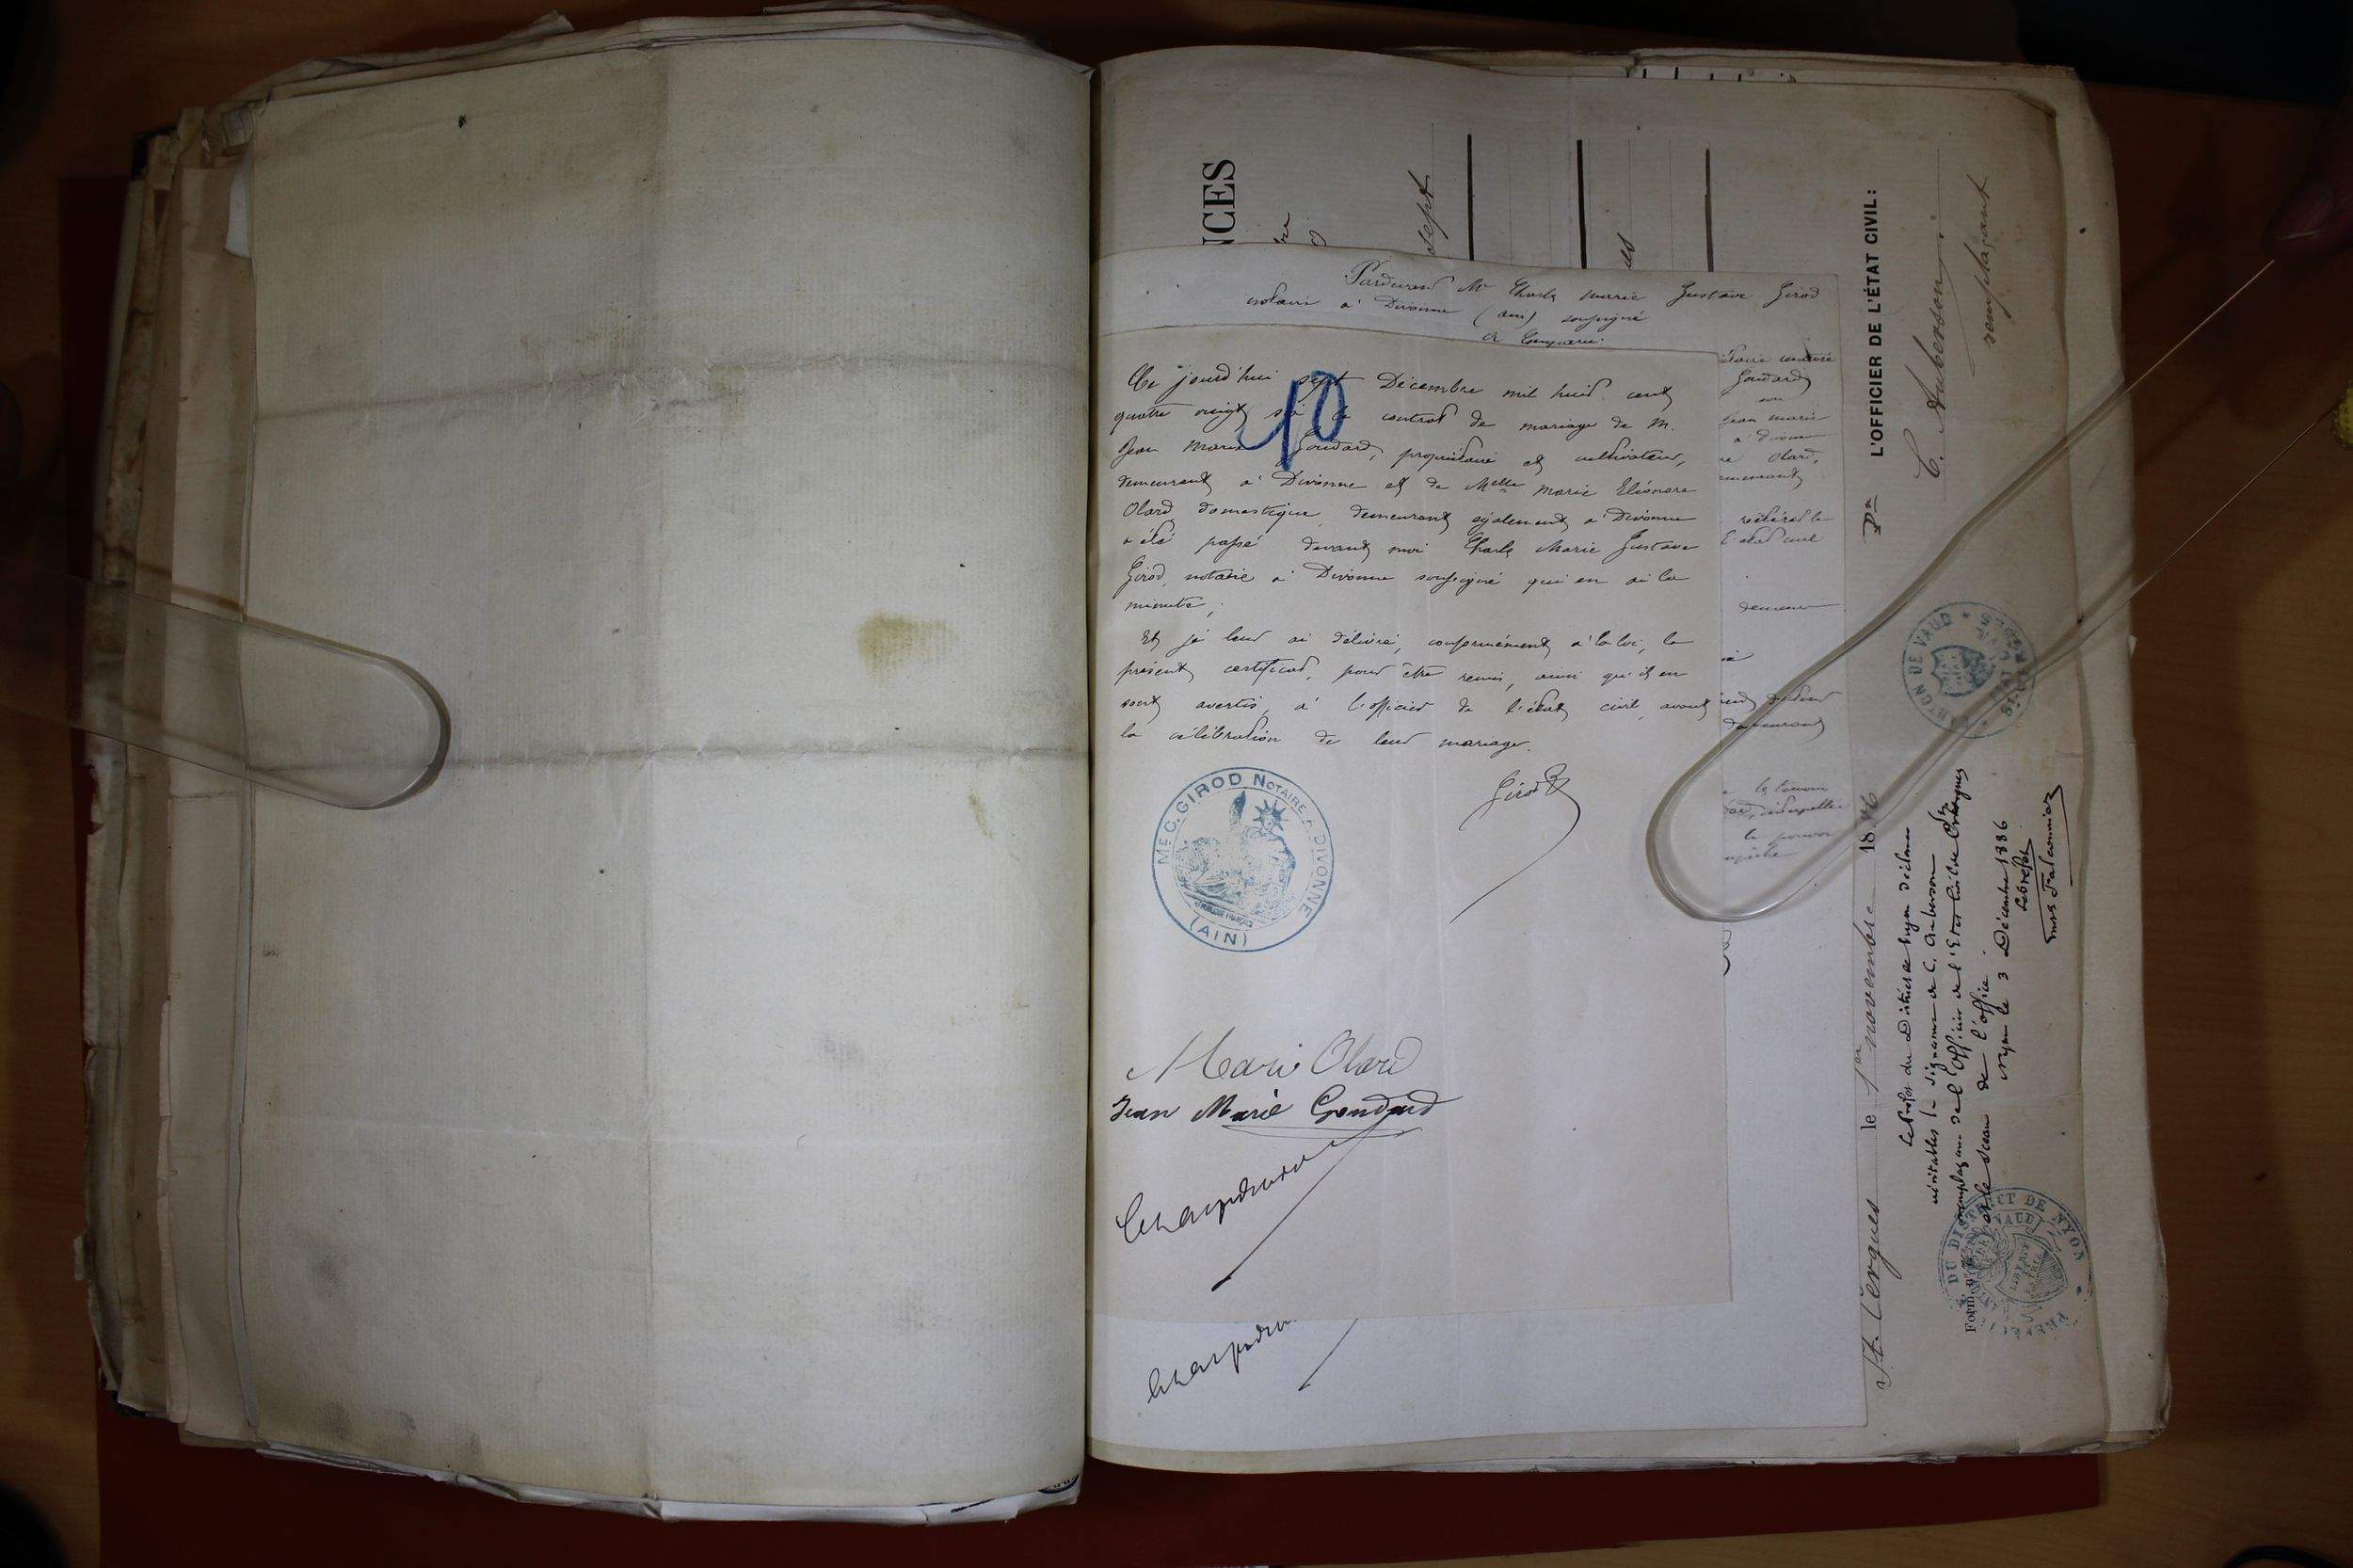 NCES
sept
Pardevant Me Charles Marie Gustave Girod
notaire à Divonne (ain) soussigné
a comparu.
10
Ce jourd'hui sept Décembre mil huit cent
quatre vingt six le contrat de mariage de M.
Jean Marie Goudard, propriétaire et cultivateur,
demeurant à Divonne et de Melle Marie Eléonore
Olard domestique, demeurant également à Divonne
a été passé devant moi Charles Marie Gustave
Girod, notaire à Divonne soussigné qui en ai la
minute;
Et je leur ai délivré, conformément à la loi, le
présent certificat, pour être remis, ainsi qu'ils en
sont avertis, à l'officier de l'état civil, avant
la célébration de leur mariage.
Girod
Me C. GIROD NOTAIRE A DIVONNE
(AIN)
Marie Olard
Jean Marie Goudard
Goudard
son
Jean Marie
à Divonne
Olard,
demeurant
l'état civil
demeurant
les témoins
le pouvoir
St. Cergues le 1er novembre 1886
L'OFFICIER DE L'ÉTAT CIVIL:
C. Auberson.
remplaçant
CANTON DE VAUD
Le Préfet du District de Nyon déclare
véritables la signature de C. Auberson
remplaçant de l'Officier de l'Etat Civil de St Cergues
et le sceau de l'office.
Nyon le 3 Décembre 1886
Le Préfet
DU DISTRICT DE NYON
VAUD